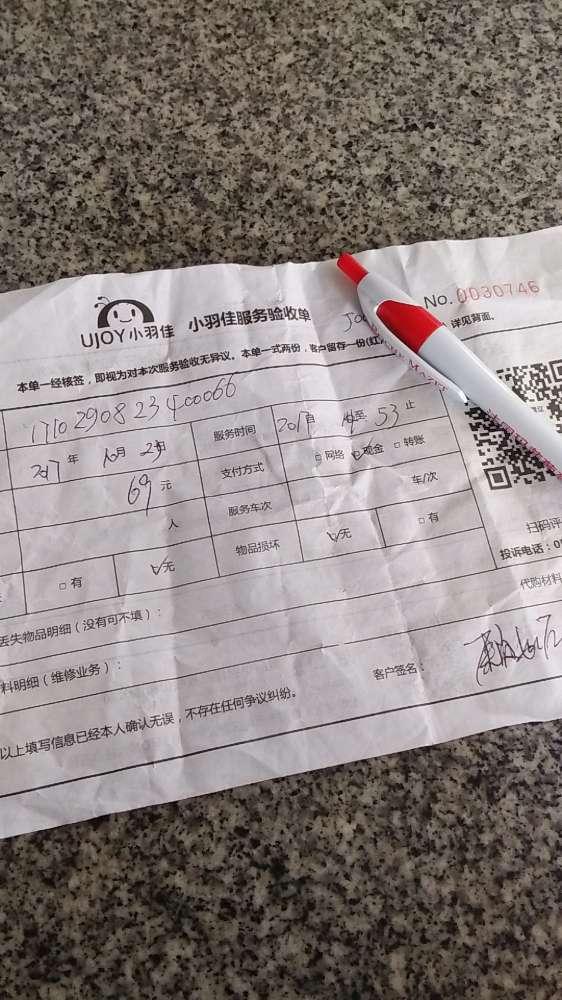 UJOY小羽佳 小羽佳服务验收单 No. 0030746
本单一经核签，即视为对本次服务验收无异议。本单一式两份，客户留存一份(红 详见背面。
171029082340066 服务时间 自 至 53 止
2017 年 10 月 29 日 支付方式 □ 网络 ☑ 现金 □ 转账
69 元 服务车次 车/次
人 物品损坏 ☑ 无 □ 有
□ 有 ☑ 无
扫码评
投诉电话：0
丢失物品明细（没有可不填）： 代购材料
料明细（维修业务）： 客户签名：
以上填写信息已经本人确认无误，不存在任何争议纠纷。